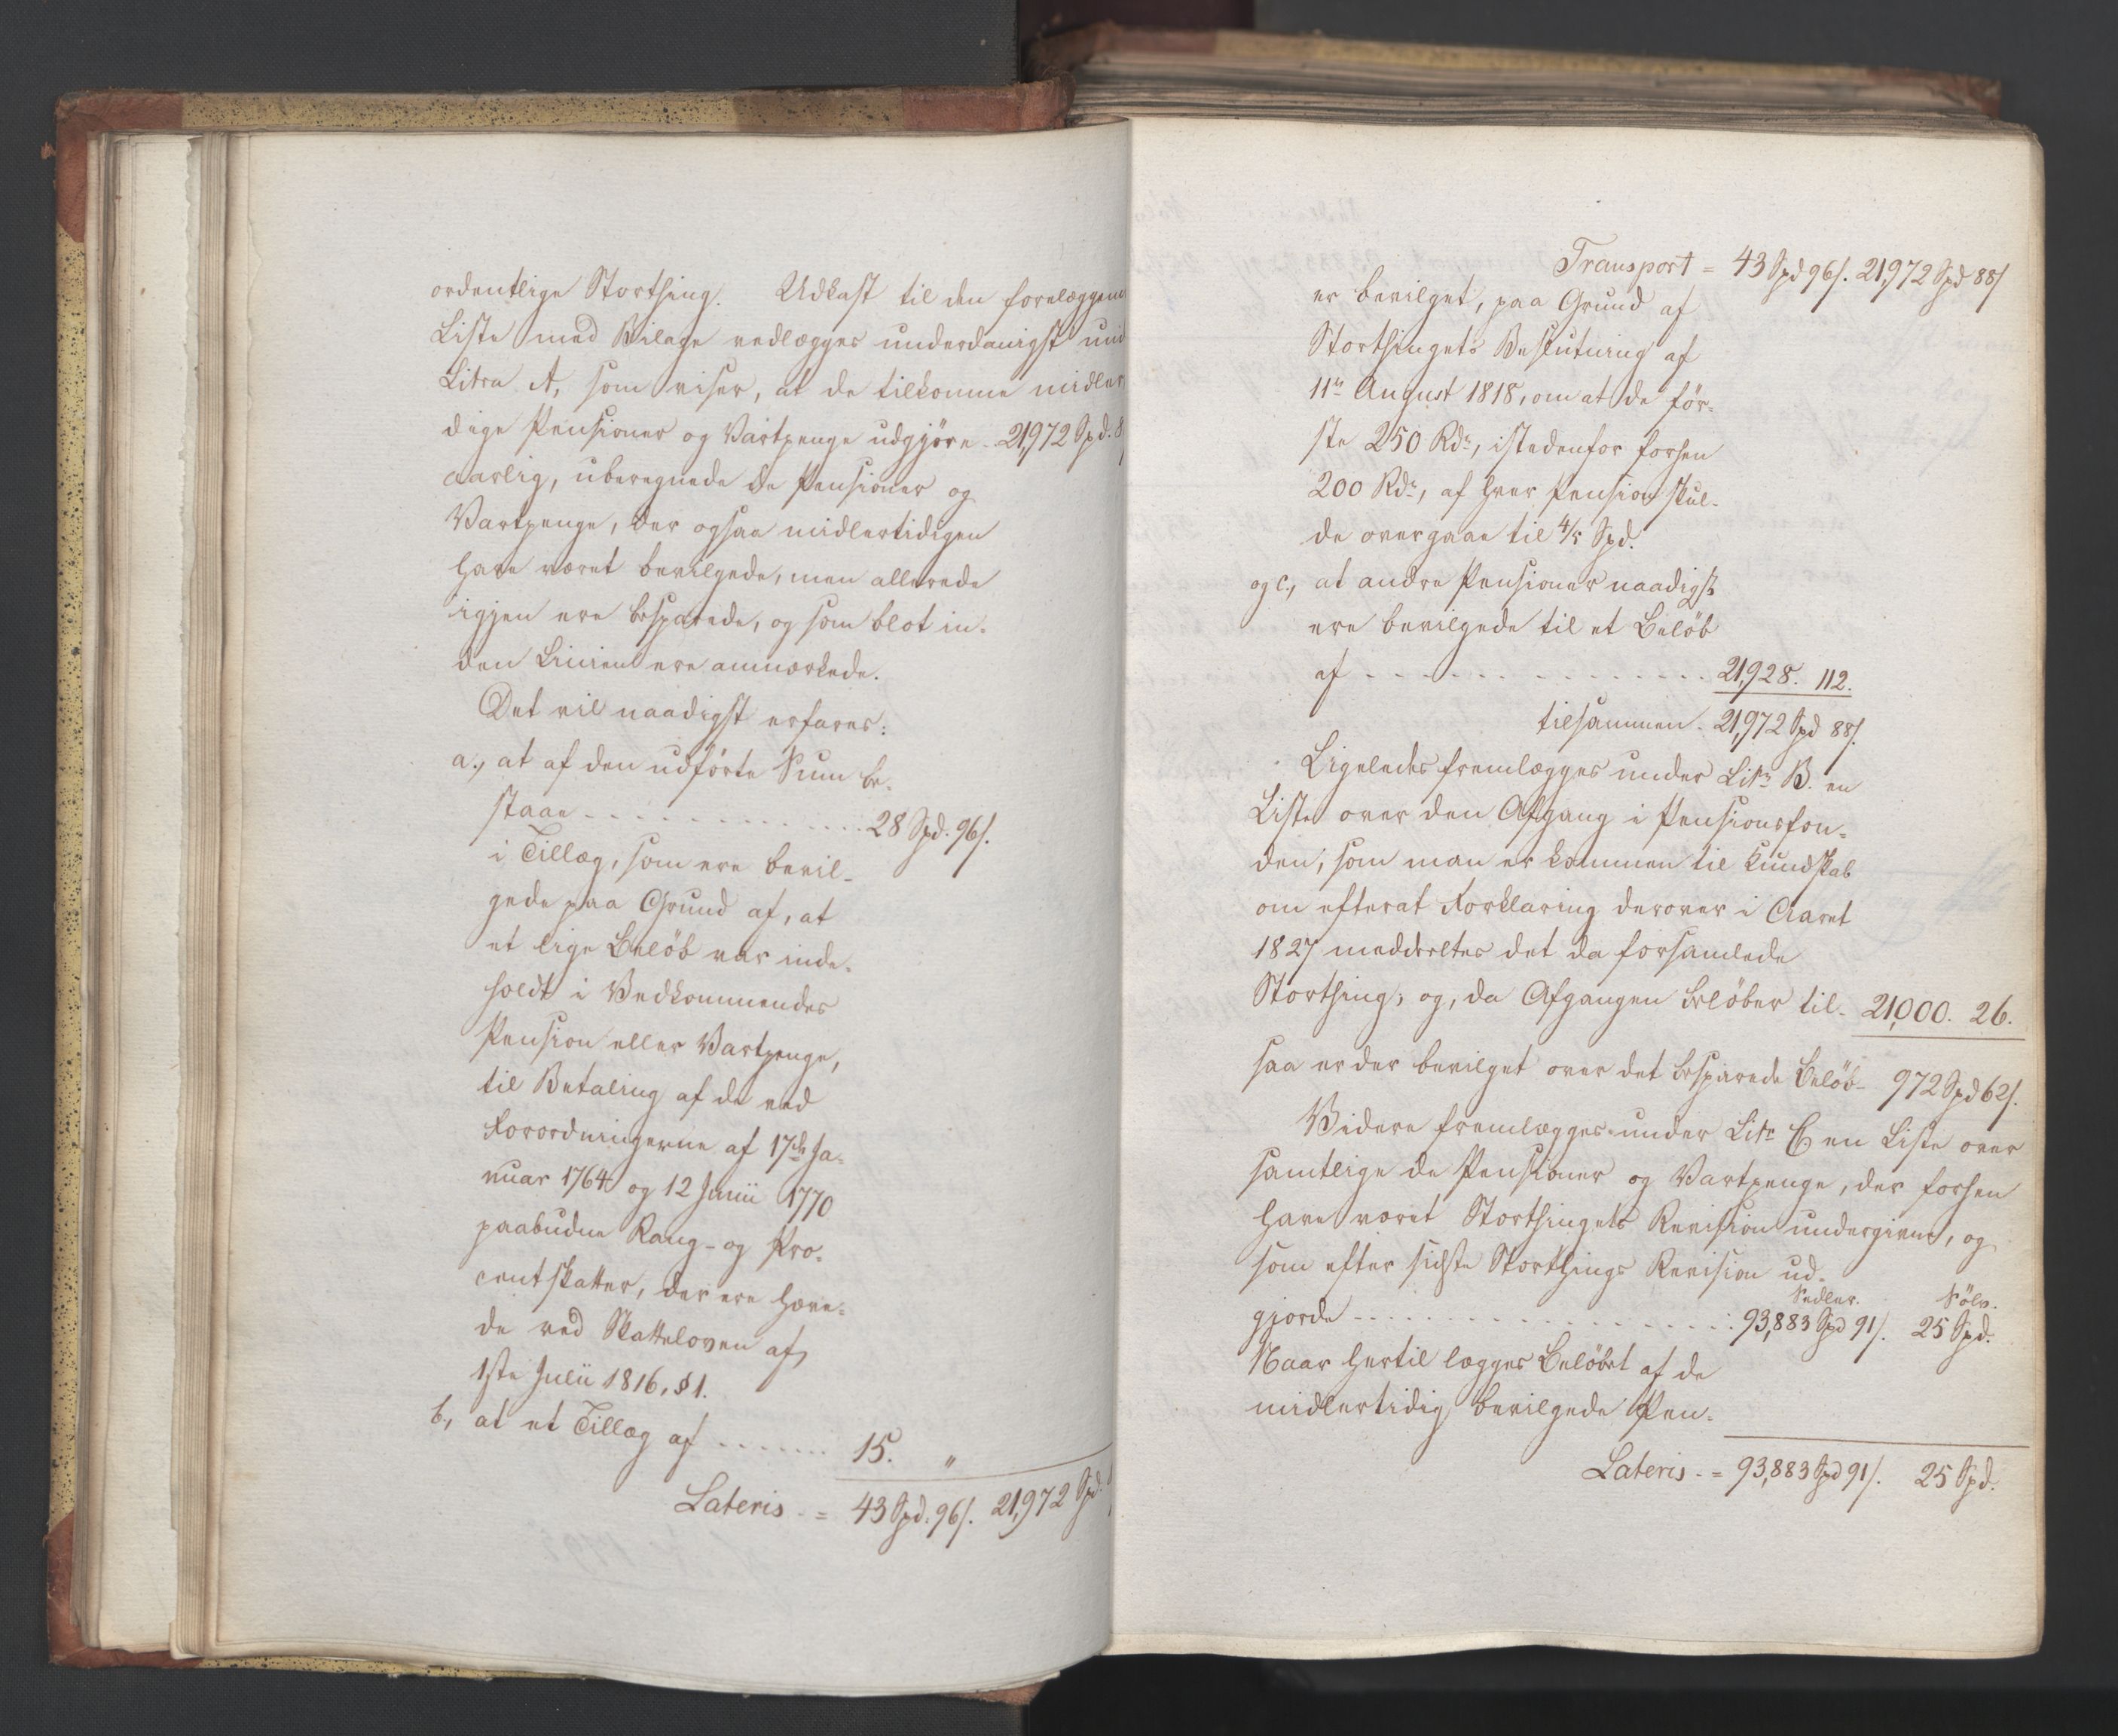 ordentlige Storthing. Udkast til den forelæggende
Liste med Bilage vedlægges underdanigst und
Litra A, som viser, at de tilkomne midler
dige Pensioner og Vartpenge udgjöre - 21,972 Spd. 8
aarlig, uberegnede de Pensioner og
Vartpenge, der ogsaa midlertidigen
have været bevilgede, men allerede
igjen ere besparede, og som blot in-
den Linien ere anmærkede.
Det vil naadigst erfares:
a., at af den udförte Sum be-
staae - - - - - - 28 Spd. 96/.
i Tillæg, som ere bevil-
gede paa Grund af, at
et lige Belöb var inde-
holdt i Vedkommendes
Pension eller Vartpenge,
til Betaling af de ved
Forordningerne af 17de Ja-
nuar 1764 og 12 Junii 1770
paabudne Rang- og Pro-
centskatter, der ere hæve-
de ved Skatteloven af
1ste Julii 1816, § 1.
b., at et Tillæg af - - - - 15. "
Lateris - = 43 Spd. 96/. 21,972 Spd.
Transport = 43 Spd 96/. 21,972 Spd 88/
er bevilget, paa Grund af
Storthingets Beslutning af
11te August 1818, om at de för-
ste 250 Rdr, istedenfor forhen
200 Rdr, af hver Pension skul-
de overgaae til 4/5 Spd.
og c., at andre Pensioner naadigst
ere bevilgede til et Belöb
af - - - - - - - 21,928. 112.
tilsammen - 21,972 Spd 88/.
Ligeledes fremlægges under Litr B. en
Liste over den Afgang i Pensionsfon-
den, som man er kommen til Kundskab
om efterat Forklaring derover i Aaret
1827 meddeeltes det da forsamlede
Storthing; og, da Afgangen belöber til - 21,000. 26.
saa er der bevilget over det besparede Belöb - 972 Spd 62/.
Videre fremlægges under Litr C en Liste over
samtlige de Pensioner og Vartpenge, der forhen
have været Storthingets Revision undergivne, og
som efter sidste Storthings Revision ud-
Sedler. Sölv.
gjorde - - - - - - - 93,883 Spd 91/. 25 Spd.
Naar hertil lægges Belöbet af de
midlertidig bevilgede Pen-
Lateris - = 93,883 Spd 91/. 25 Spd.